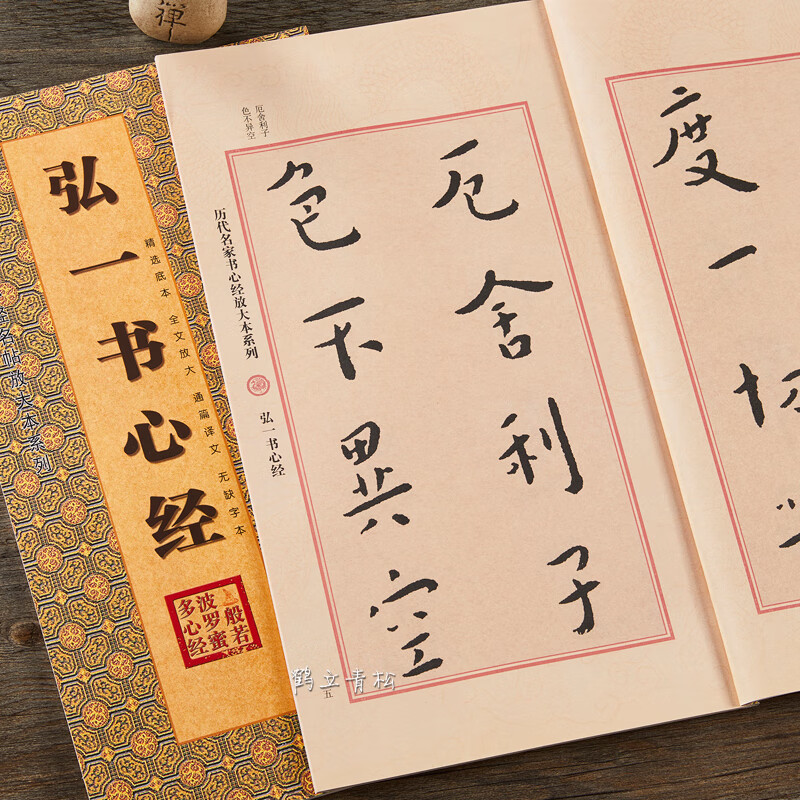 禅
弘一书心经
精选底本 全文放大 通篇译文 无缺字本
名帖放大本系列
般若
波罗蜜
多心经
厄舍利子
色不异空
度一切
厄舍利子
色不異空
历代名家书心经放大本系列
弘一书心经
五
鹤立青松